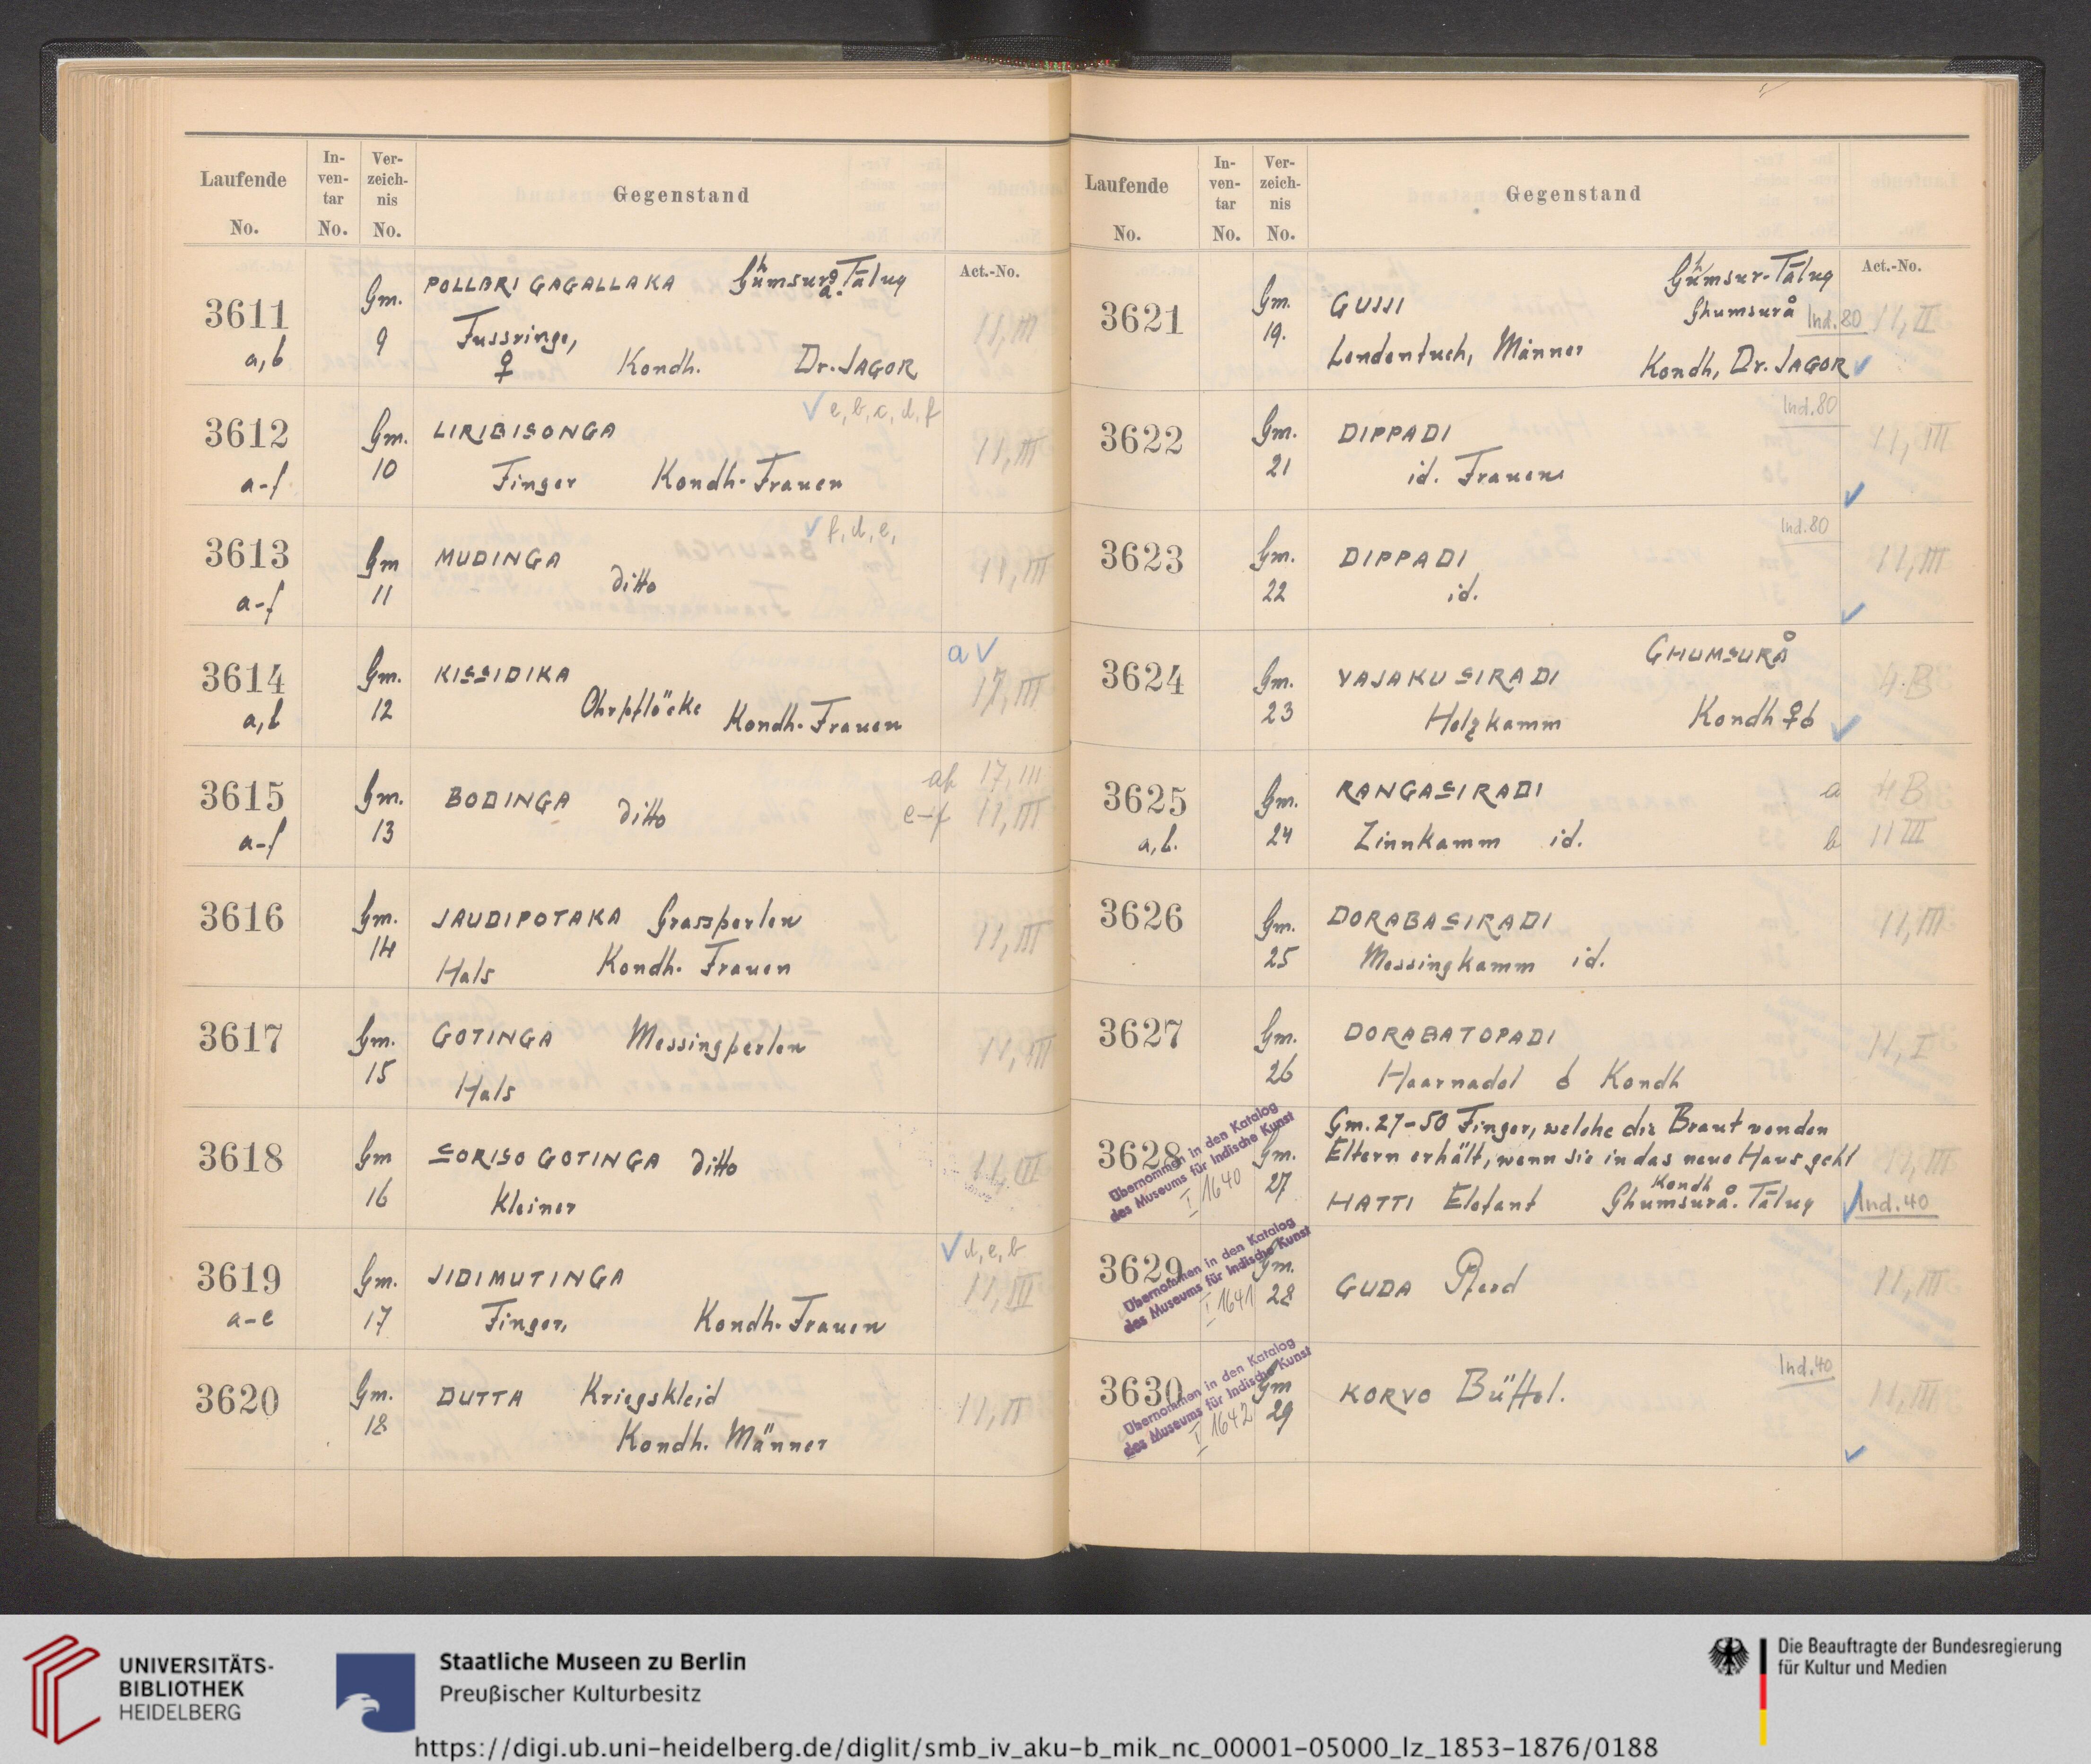 Laufende No.
In-ven-tar No.
Ver-zeich-nis No.
Gegenstand
Act.-No.
3611 a,b
Gm. 9
POLLBRI GAGALLAKA Gumsura Tālug
Fussringe,
♀ Kondh. Dr. JAGOR
11, III
3612 a-f
Gm. 10
LIRIBISONGA
✓ e, b, c, d, f
Finger Kondh-Frauen
11, III
3613 a-f
Gm 11
MUDINGA
✓ f, d, e,
ditto
11, III
3614 a,b
Gm. 12
KISSIDIKA
a ✓
Ohrpflöcke Kondh-Frauen
17, III
3615 a-f
Gm. 13
BODINGA ditto
17, III
e-f 11, III
3616
Gm. 14
JAUDIPOTAKA Grassperlen
Hals Kondh. Frauen
11, III
3617
Gm. 15
GOTINGA Messingperlen
Hals
11, III
3618
Gm 16
SORISO GOTINGA ditto
Kleiner
11, III
3619 a-e
Gm. 17
JIDIMUTINGA
✓ d, e, b
Finger, Kondh-Frauen
11, III
3620
Gm. 18
DUTTA Kriegskleid
Kondh. Männer
11, II
Laufende No.
In-ven-tar No.
Ver-zeich-nis No.
Gegenstand
Act.-No.
3621
Gm. 19.
Ghumsur-Tālug
GUSSI Ghumsurå Ind. 80
Lendentuch, Männer Kondh, Dr. JAGOR ✓
11, II
3622
Gm. 21
Ind. 80
DIPPADI
id. Frauen
✓
11, III
3623
Gm. 22
Ind. 80
DIPPADI
id.
✓
11, III
3624
Gm. 23
GHUMSURÅ
VAJAKUSIRADI
Holzkamm Kondh ♀♂ ✓
4.B
3625 a,b.
Gm. 24
RANGASIRADI a 4B
Zinnkamm id. b 11 III
3626
Gm. 25
DORABASIRADI
Messingkamm id.
11, III
3627
Gm. 26
DORABATOPADI
Haarnadel ♂ Kondh
11, I
3628
Gm. 27
Übernommen in den Katalog
des Museums für Indische Kunst
I 1640
Gm. 27-50 Finger, welche die Braut von den
Eltern erhält, wenn sie in das neue Haus geht
HATTI Elefant Kondh Ghumsurå. Tālug ✓ Ind. 40
11, III
3629
Gm. 28
Übernommen in den Katalog
des Museums für Indische Kunst
I 1641
GUDA Pferd
11, III
3630
Gm 29
Übernommen in den Katalog
des Museums für Indische Kunst
I 1642
KORVO Büffel.
Ind. 40
11, III
✓
UNIVERSITÄTS-
BIBLIOTHEK
HEIDELBERG
Staatliche Museen zu Berlin
Preußischer Kulturbesitz
Die Beauftragte der Bundesregierung
für Kultur und Medien
https://digi.ub.uni-heidelberg.de/diglit/smb_iv_aku-b_mik_nc_00001-05000_lz_1853-1876/0188